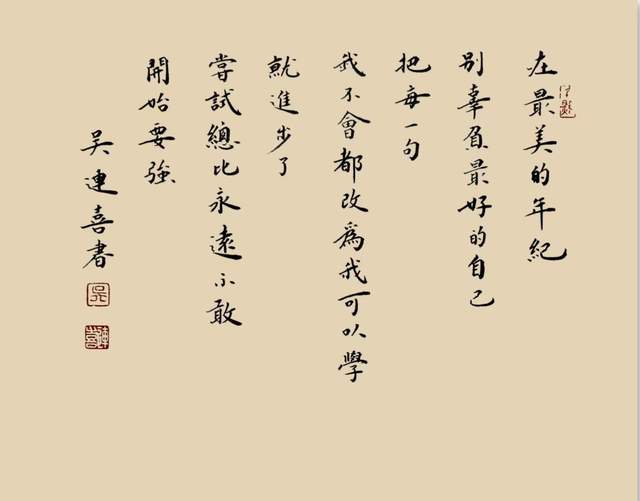 在最美的年紀
别辜負最好的自己
把每一句
我不會都改為我可以學
就進步了
嘗試總比永遠不敢
開始要強
吳連喜書
吳
連喜